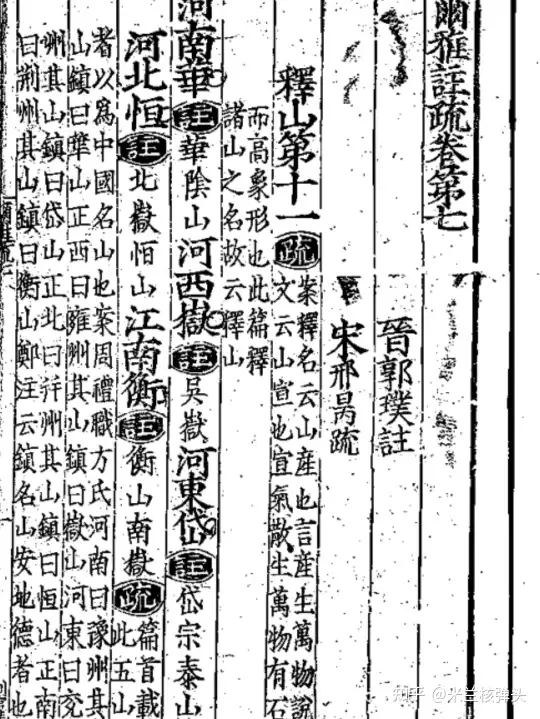 爾雅註疏卷第七
晉郭璞註
宋邢昺疏
釋山第十一疏案釋名云山産也言産生萬物說
文云山宣也宣氣散生萬物有石
而高象形也此篇釋
諸山之名故云釋山
河南華註華陰山河西嶽註吳嶽河東岱註岱宗泰山
河北恒註北嶽恒山江南衡註衡山南嶽疏篇首載
此五山
者以爲中國名山也案周禮職方氏河南曰豫州其
山鎮曰華山正西曰雍州其山鎮曰嶽山河東曰兖
州其山鎮曰岱山正北曰并州其山鎮曰恒山正南
曰荆州其山鎮曰衡山鄭注云鎮名山安地德者也
知乎 @米兰核弹头